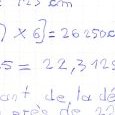 = 125 cm
) × 6] = 26250 c
5 = 22,3125
ant de la dé
près de 22